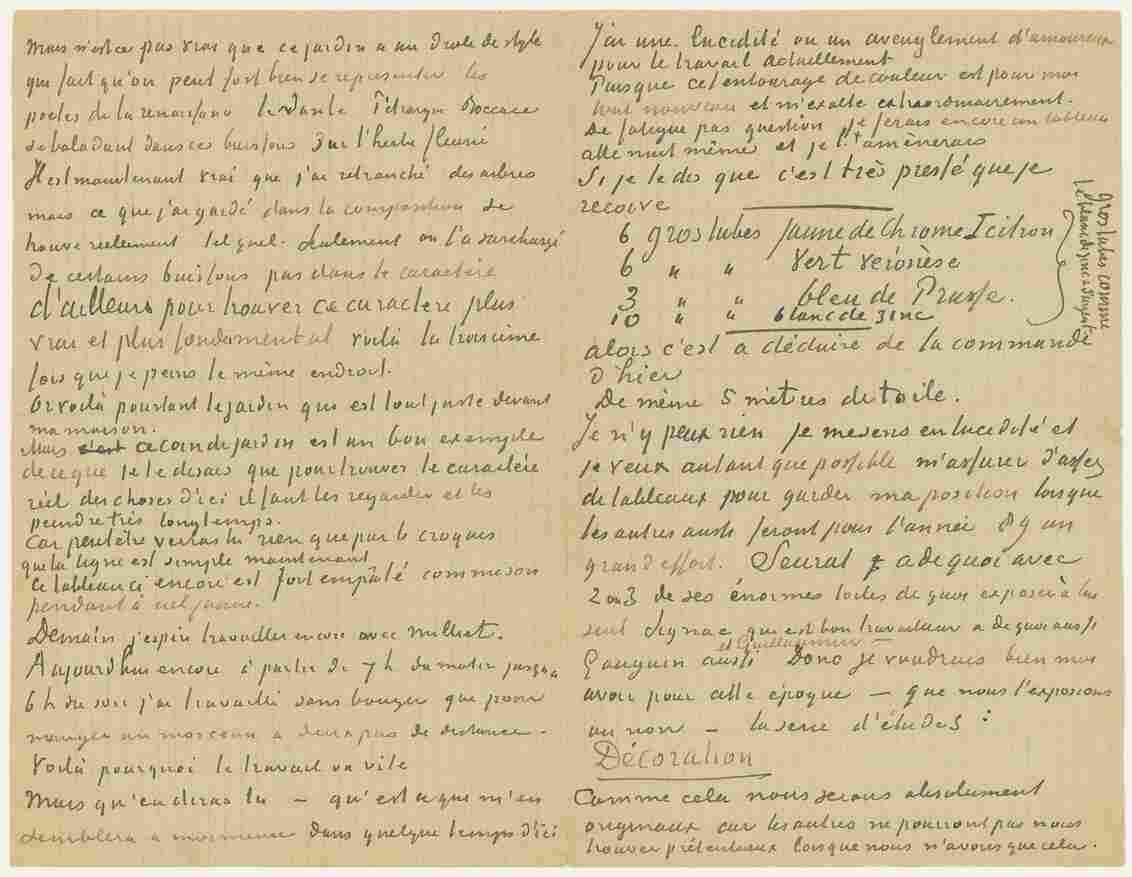 Mais n'est ce pas vrai que ce jardin a un drole de style
qui fait qu'on peut fort bien se representer les
poetes de la renaissance le Dante Pétrarque Boccace
se baladant dans ces buissons sur l'herbe fleurie
Il est maintenant vrai que j'ai retranché des arbres
mais ce que j'ai gardé dans la composition se
trouve reellement tel quel. Seulement on l'a surchargé
de certains buissons pas dans le caractère
d'ailleurs pour trouver ce caractere plus
vrai et plus fondamental voilà la troisieme
fois que je peins le même endroit.
Or voilà pourtant le jardin qui est tout juste devant
ma maison.
Mais c'est ce coin de jardin est un bon exemple
de ce que je te disais que pour trouver le caractère
réel des choses d'ici il faut les regarder et les
peindre très longtemps.
Car peutetre verras tu rien que par le croquis
que la ligne est simple maintenant
Ce tableau ci encore est fort empâté comme son
pendant à ciel jaune.
Demain j'espère travailler encore avec Milliet.
Aujourd'hui encore à partir de 7 h du matin jusqu'a
6 h du soir j'ai travaillé sans bouger que pour
manger un morceau a deux pas de distance.
Voilà pourquoi le travail va vite
Mais qu'en diras tu – qu'est ce que m'en
semblera a moi meme dans quelque temps d'ici
J'ai une lucidité ou un aveuglement d'amoureux
pour le travail actuellement
Puisque cet entourage de couleur est pour moi
tout nouveau et m'exalte extraordinairement.
De fatigue pas question je ferais encore un tableau
cette nuit même et je l'amènerais
Si je te dis que c'est très pressé que je
recoive
6 gros tubes jaune de Chrome I citron
6 " " Vert veronèse
3 " " bleu de Prusse.
10 " " blanc de zinc
gros tubes comme
le blanc de zinc & d'argent
alors c'est a déduire de la commande
d'hier
De même 5 mètres de toile.
Je n'y peux rien je me sens en lucidité et
je veux autant que possible m'assurer d'assez
de tableaux pour garder ma position lorsque
les autres aussi feront pour l'année 89 un
grand effort. Seurat a de quoi avec
2 ou 3 de ses énormes toiles de quoi exposer à lui
seul Signac qui est bon travailleur a de quoi aussi
et Guillaumin
Gauguin aussi Donc je voudrais bien moi
avoir pour cette époque – que nous l'exposions
ou non – la serie d'études :
Décoration
Comme cela nous serons absolument
originaux car les autres ne pourront pas nous
trouver prétentieux lorsque nous n'avons que cela.